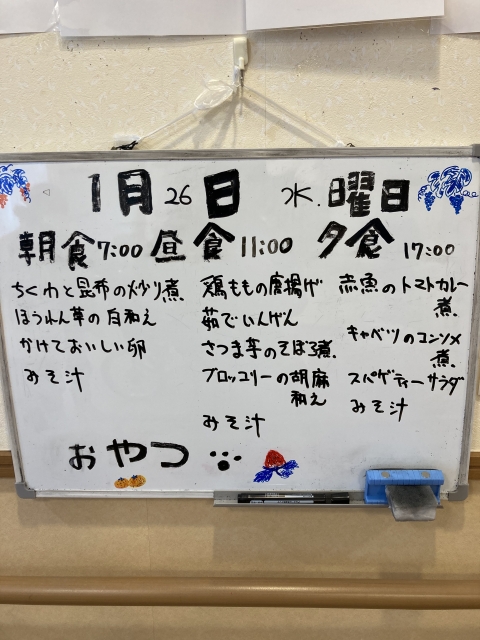 1月26日 水.曜日
朝食7:00
ちくわと昆布の炒り煮
ほうれん草の白和え
かけておいしい卵
みそ汁
昼食11:00
鶏ももの唐揚げ
茹でいんげん
さつま芋のそぼろ煮.
ブロッコリーの胡麻
和え
みそ汁
夕食17:00
赤魚のトマトカレー
煮.
キャベツのコンソメ
煮.
スパゲティーサラダ
みそ汁
おやつ